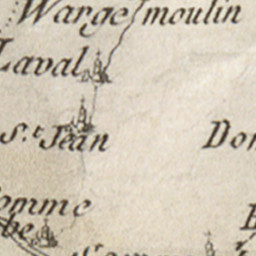 Wargemoulin
Laval
S.t Jean
Don
omme
be